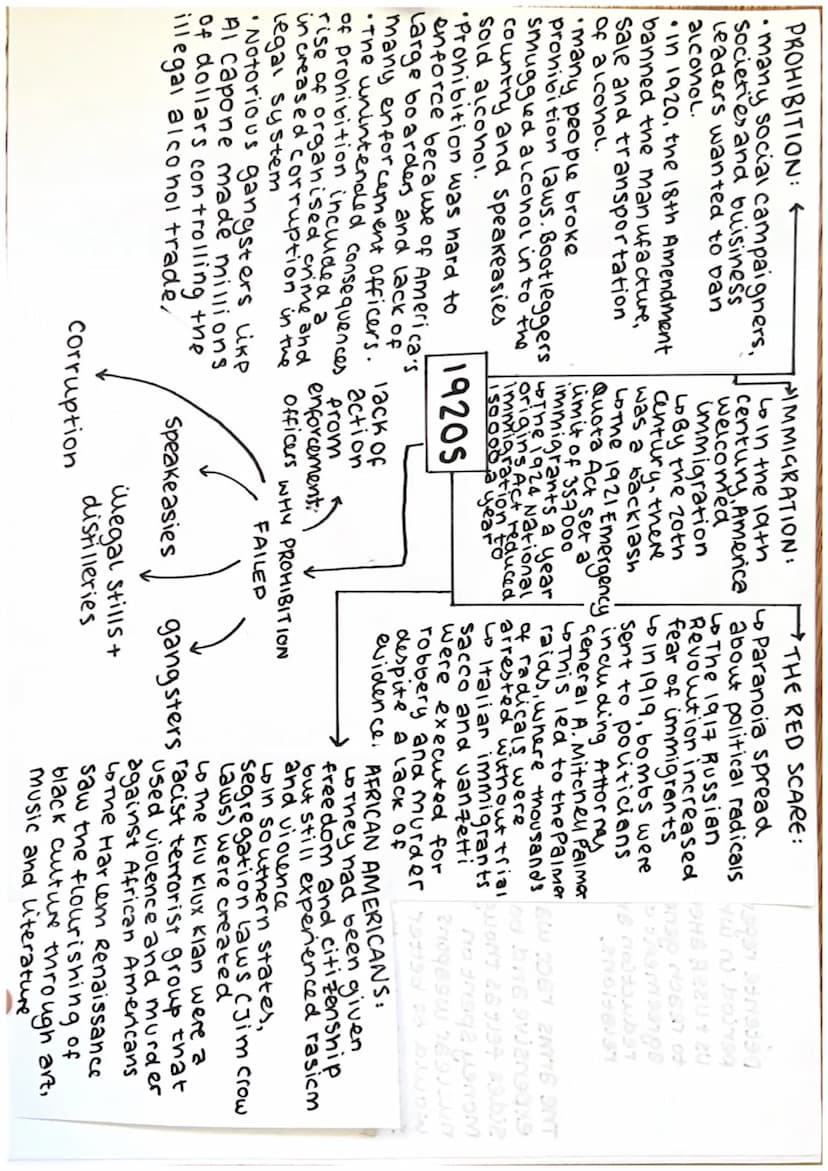 PROHIBITION:
• many social campaigners,
societies and buisiness
leaders wanted to ban
alcohol.
• in 1920, the 18th Amendment
banned the manufacture,
sale and transportation
of alcohol.
• many people broke
prohibition laws. Bootleggers
smuggled alcohol in to the
country and speakeasies
sold alcohol.
• Prohibition was hard to
enforce because of America's
large boarders and lack of
many enforcement officers.
• The unintended consequences
of prohibition included a
rise of organised crime and
increased corruption in the
legal system
• Notorious gangsters like
Al Capone made millions
of dollars controlling the
illegal alcohol trade,
1920s
IMMIGRATION:
↳ In the 19th
century, America
welcomed
immigration
↳ By the 20th
century, there
was a backlash
↳ The 1921 Emergency
Quota Act set a
limit of 357000
immigrants a year
↳ The 1924 National
origins Act reduced
immigration to
150000 a year
THE RED SCARE:
↳ Paranoia spread
about political radicals
↳ The 1917 Russian
Revolution increased
fear of immigrants
↳ In 1919, bombs were
sent to politicians
including Attorney
General A. Mitchell Palmer
↳ This led to the Palmer
raids, where thousands
of radicals were
arrested without trial
↳ Italian immigrants
Sacco and Vanzetti
were executed for
robbery and murder
despite a lack of
evidence.
WHY PROHIBITION
FAILED
lack of
action
from
enforcement
officers
corruption
speakeasies
illegal stills +
distilleries
gangsters
AFRICAN AMERICANS:
↳ They had been given
freedom and citizenship
but still experienced rasicm
and violence
↳ In southern states,
segregation laws (Jim crow
laws) were created
↳ The Klu Klux Klan were a
racist terrorist group that
used violence and murder
against African Americans
↳ The Harlem Renaissance
saw the flourishing of
black culture through art,
music and literature